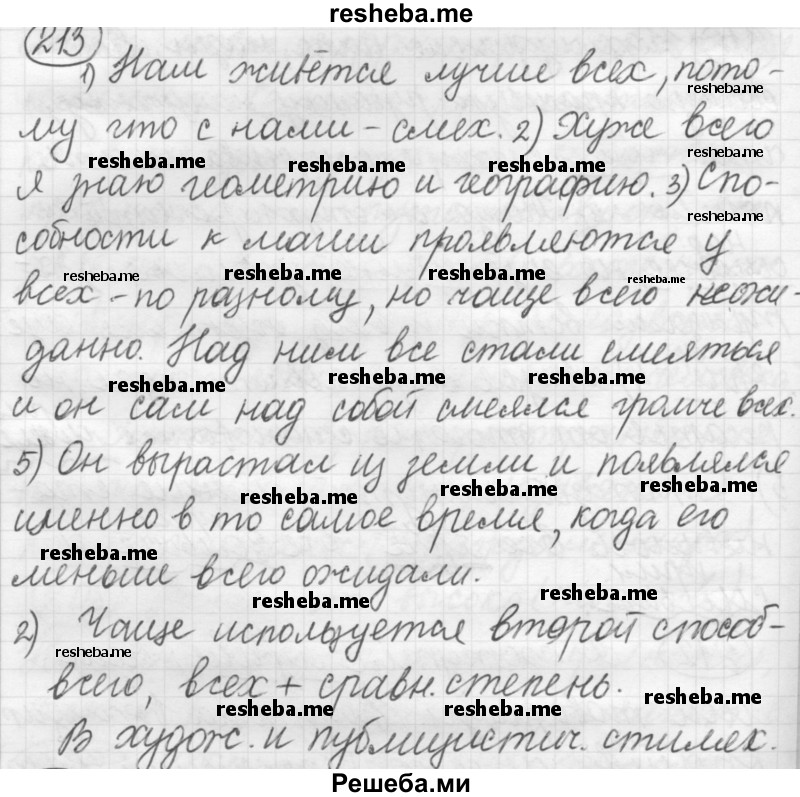 resheba.me
213
1) Нам живётся лучше всех, пото-
resheba.me
му что с нами - смех. 2) Хуже всего
resheba.me resheba.me resheba.me
я знаю геометрию и географию. 3) Спо-
собности к магии проявляются у
resheba.me resheba.me resheba.me resheba.me
всех - по разному, но чаще всего неожи-
данно. Над ним все стали смеяться
resheba.me resheba.me resheba.me
и он сам над собой смеялся громче всех.
5) Он вырастал из земли и появлялся
resheba.me resheba.me resheba.me
именно в то самое время, когда его
resheba.me
меньше всего ожидали.
resheba.me resheba.me
2) Чаще используется второй способ-
resheba.me
всего, всех + сравн. степень.
resheba.me resheba.me resheba.me
В худож. и публицистич. стилях.
Решеба.ми